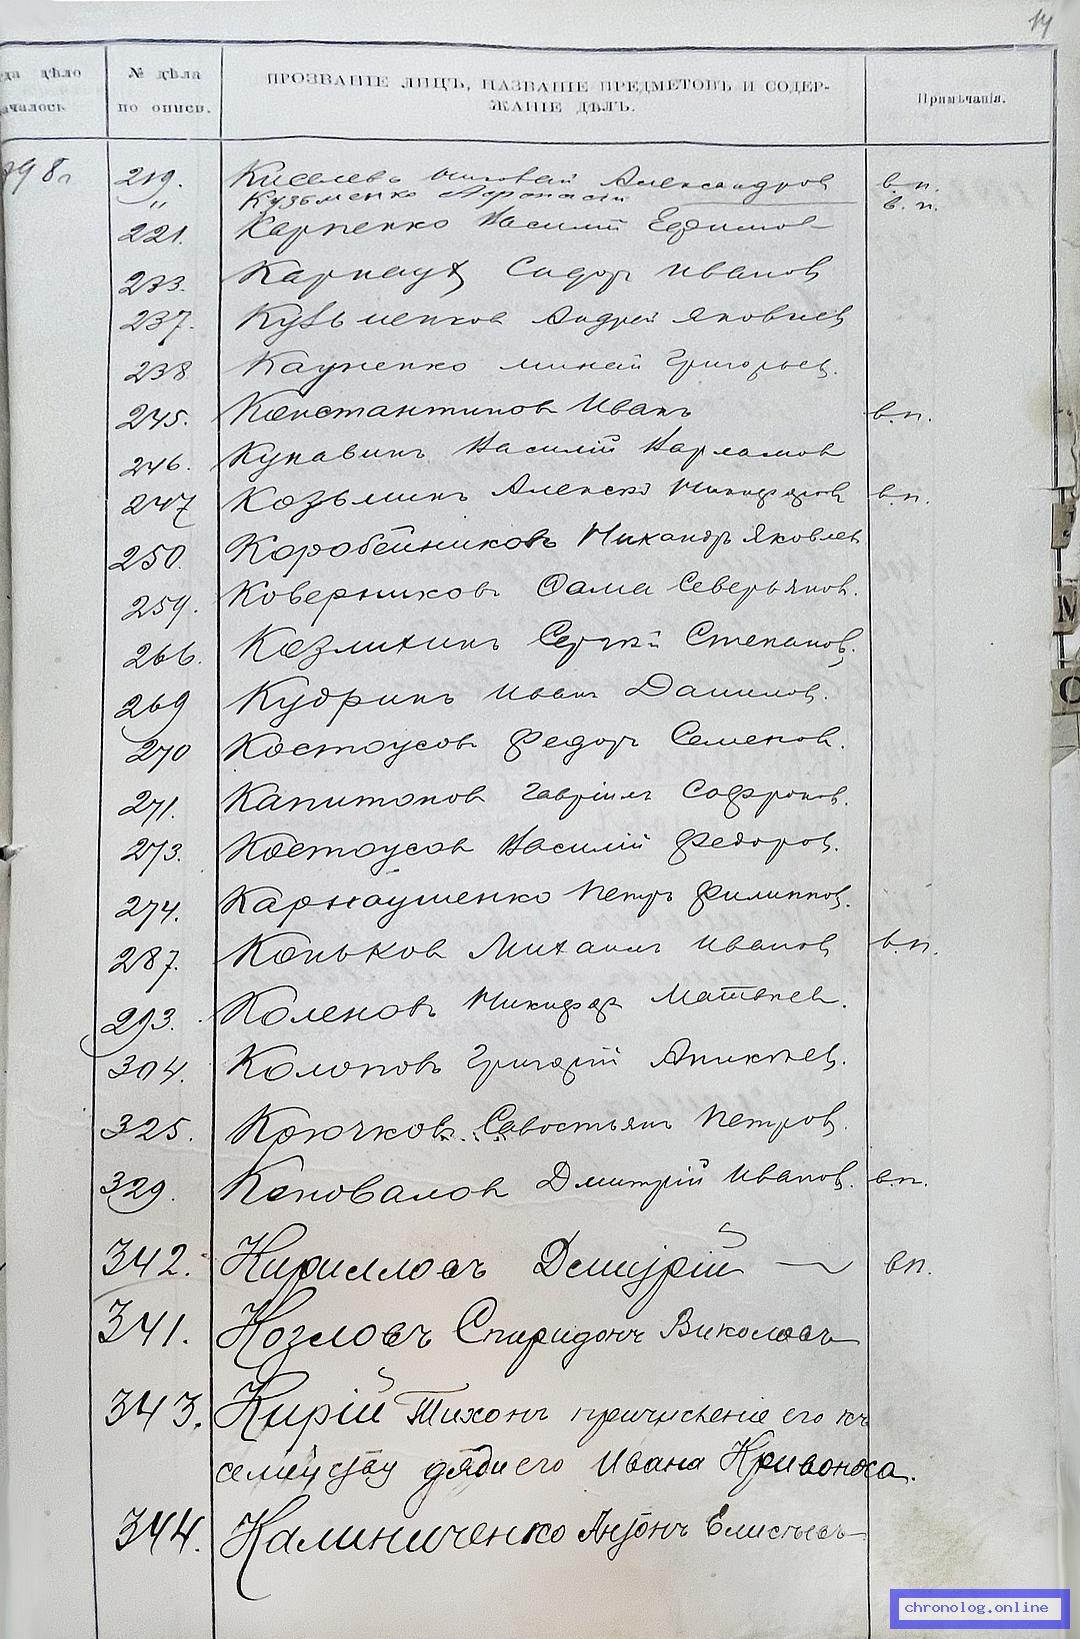 14
да дѣло
ачалось
№ дѣла
по описи.
ПРОЗВАНІЕ ЛИЦЪ, НАЗВАНІЕ ПРЕДМЕТОВЪ И СОДЕР-
ЖАНІЕ ДѢЛЪ.
Примѣчанія.
219. Киселевъ Александров в.п.
" Кузьменко Афанасій в.п.
221. Карпенко Василій Ефимов
233. Карнаух Сидор Иванов
237. Кузьменков Андрей Яковлев
238 Минай Григорьев.
245. Константинов Иванъ в.п.
246. Купавинъ Василій Варламов
247 Козьминъ Алексѣй Никифоров в.п.
250. Коробейниковъ Никандръ Яковлев
259. Коверниковъ Фома Северьянов.
266. Козлихинъ Сергѣй Степанов.
269 Кудринъ Иванъ Данилов.
270 Костоусов Федоръ Семенов.
271. Капитонов Гавріилъ Софронов.
273. Костоусов Василій Федоров.
274. Карнаушенко Петръ Филиппов.
287. Коньков Михаилъ Иванов в.п.
293. Коленовъ Никифоръ Матвѣев.
304. Колоповъ Григорій Аникѣев.
325. Крючковъ Савостьянъ Петров.
329. Коновалов Дмитрій Иванов. в.п.
342. Кирилловъ Дмитрій вп.
341. Козловъ Спиридонъ
343. Кирій Тихонъ причисленіе его къ
семейству дяди его Ивана Кривоноса.
344. Калиниченко Антонъ Елисѣевъ
М
С
chronolog.online